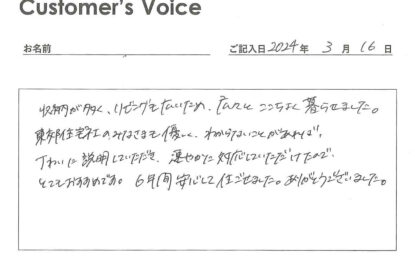 Customer's Voice
お名前
ご記入日 2024年 3月 16日
収納が多く、リビングも広いため、広々と ここちよく 暮らせました。
東邦住宅社のみなさまも優しく、わからないことがあれば、
丁ねいに 説明していただき、速やかに 対応していただけたので、
とてもおすすめです。6年間 安心して 住ごせました。ありがとうございました。